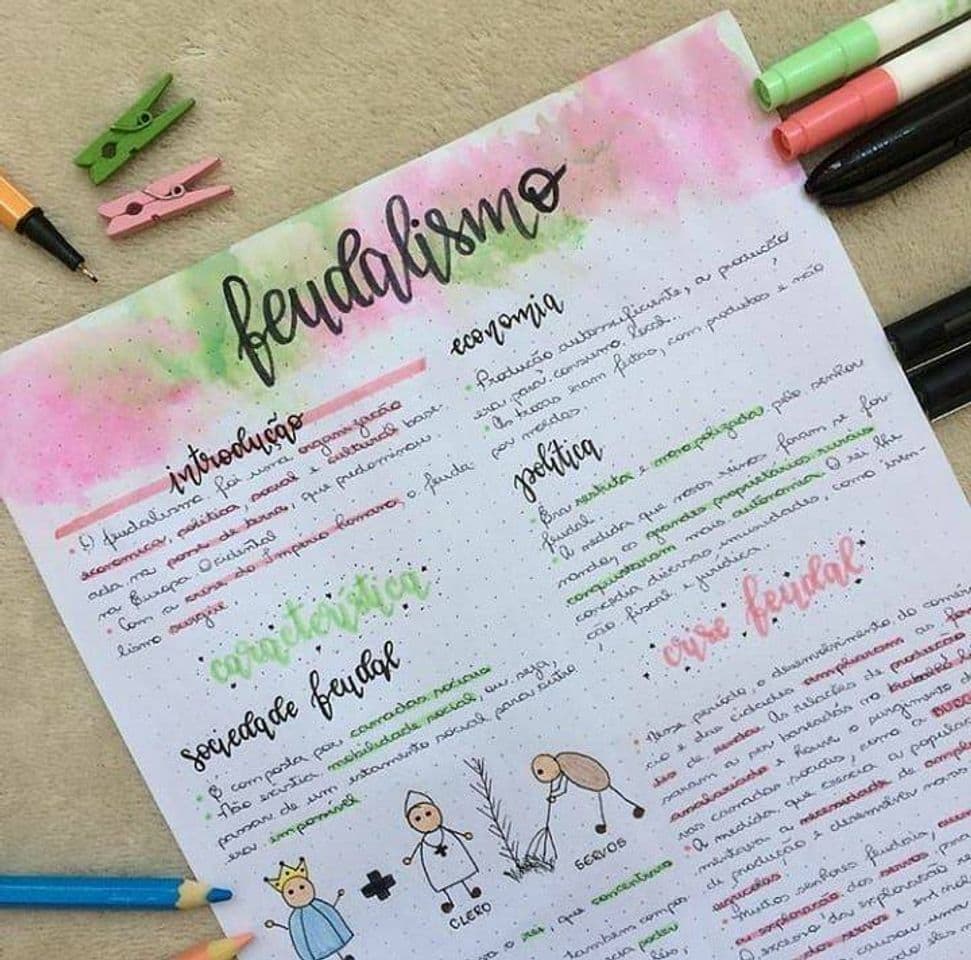 feudalismo
introdução
• O feudalismo foi uma organização
econômica, política, social e cultural base-
ada na posse de terra, que predominou
na Europa Ocidental.
• Com a crise do Império Romano, o feuda-
lismo surgiu.
característica
sociedade feudal
• É composta por camadas sociais
• Não existia mobilidade social, ou seja,
passar de um estamento social para outro
era impossível
CLERO
SERVOS
o rei, que concentrava
também
poder
economia
• Produção autossuficiente, a produção
era para consumo local.
• As trocas eram feitas, com produtos e não
por moedas.
política
• Era restrita e monopolizada pelo senhor
feudal.
• A medida que novos reinos foram se for-
mando, os grandes proprietários rurais
conquistaram mais autônomia. O rei lhe
concedia diversas imunidades, como isen-
ção fiscal e jurídica.
crise feudal
• Nesse período, o desenvolvimento do comér-
cio e das cidades ampliaram as
de rendas. As relações de produção
saram a ser baseadas no trabalho
assalariado e houve o surgimento de
vas camadas sociais, como a
• A medida que crescia a popular
mentava a necessidade de
de produção e desenvolvia
agrícolas
• Muitos senhores feudais,
a exploração dos servos,
O excesso da exploração
dos servos e
causou uma